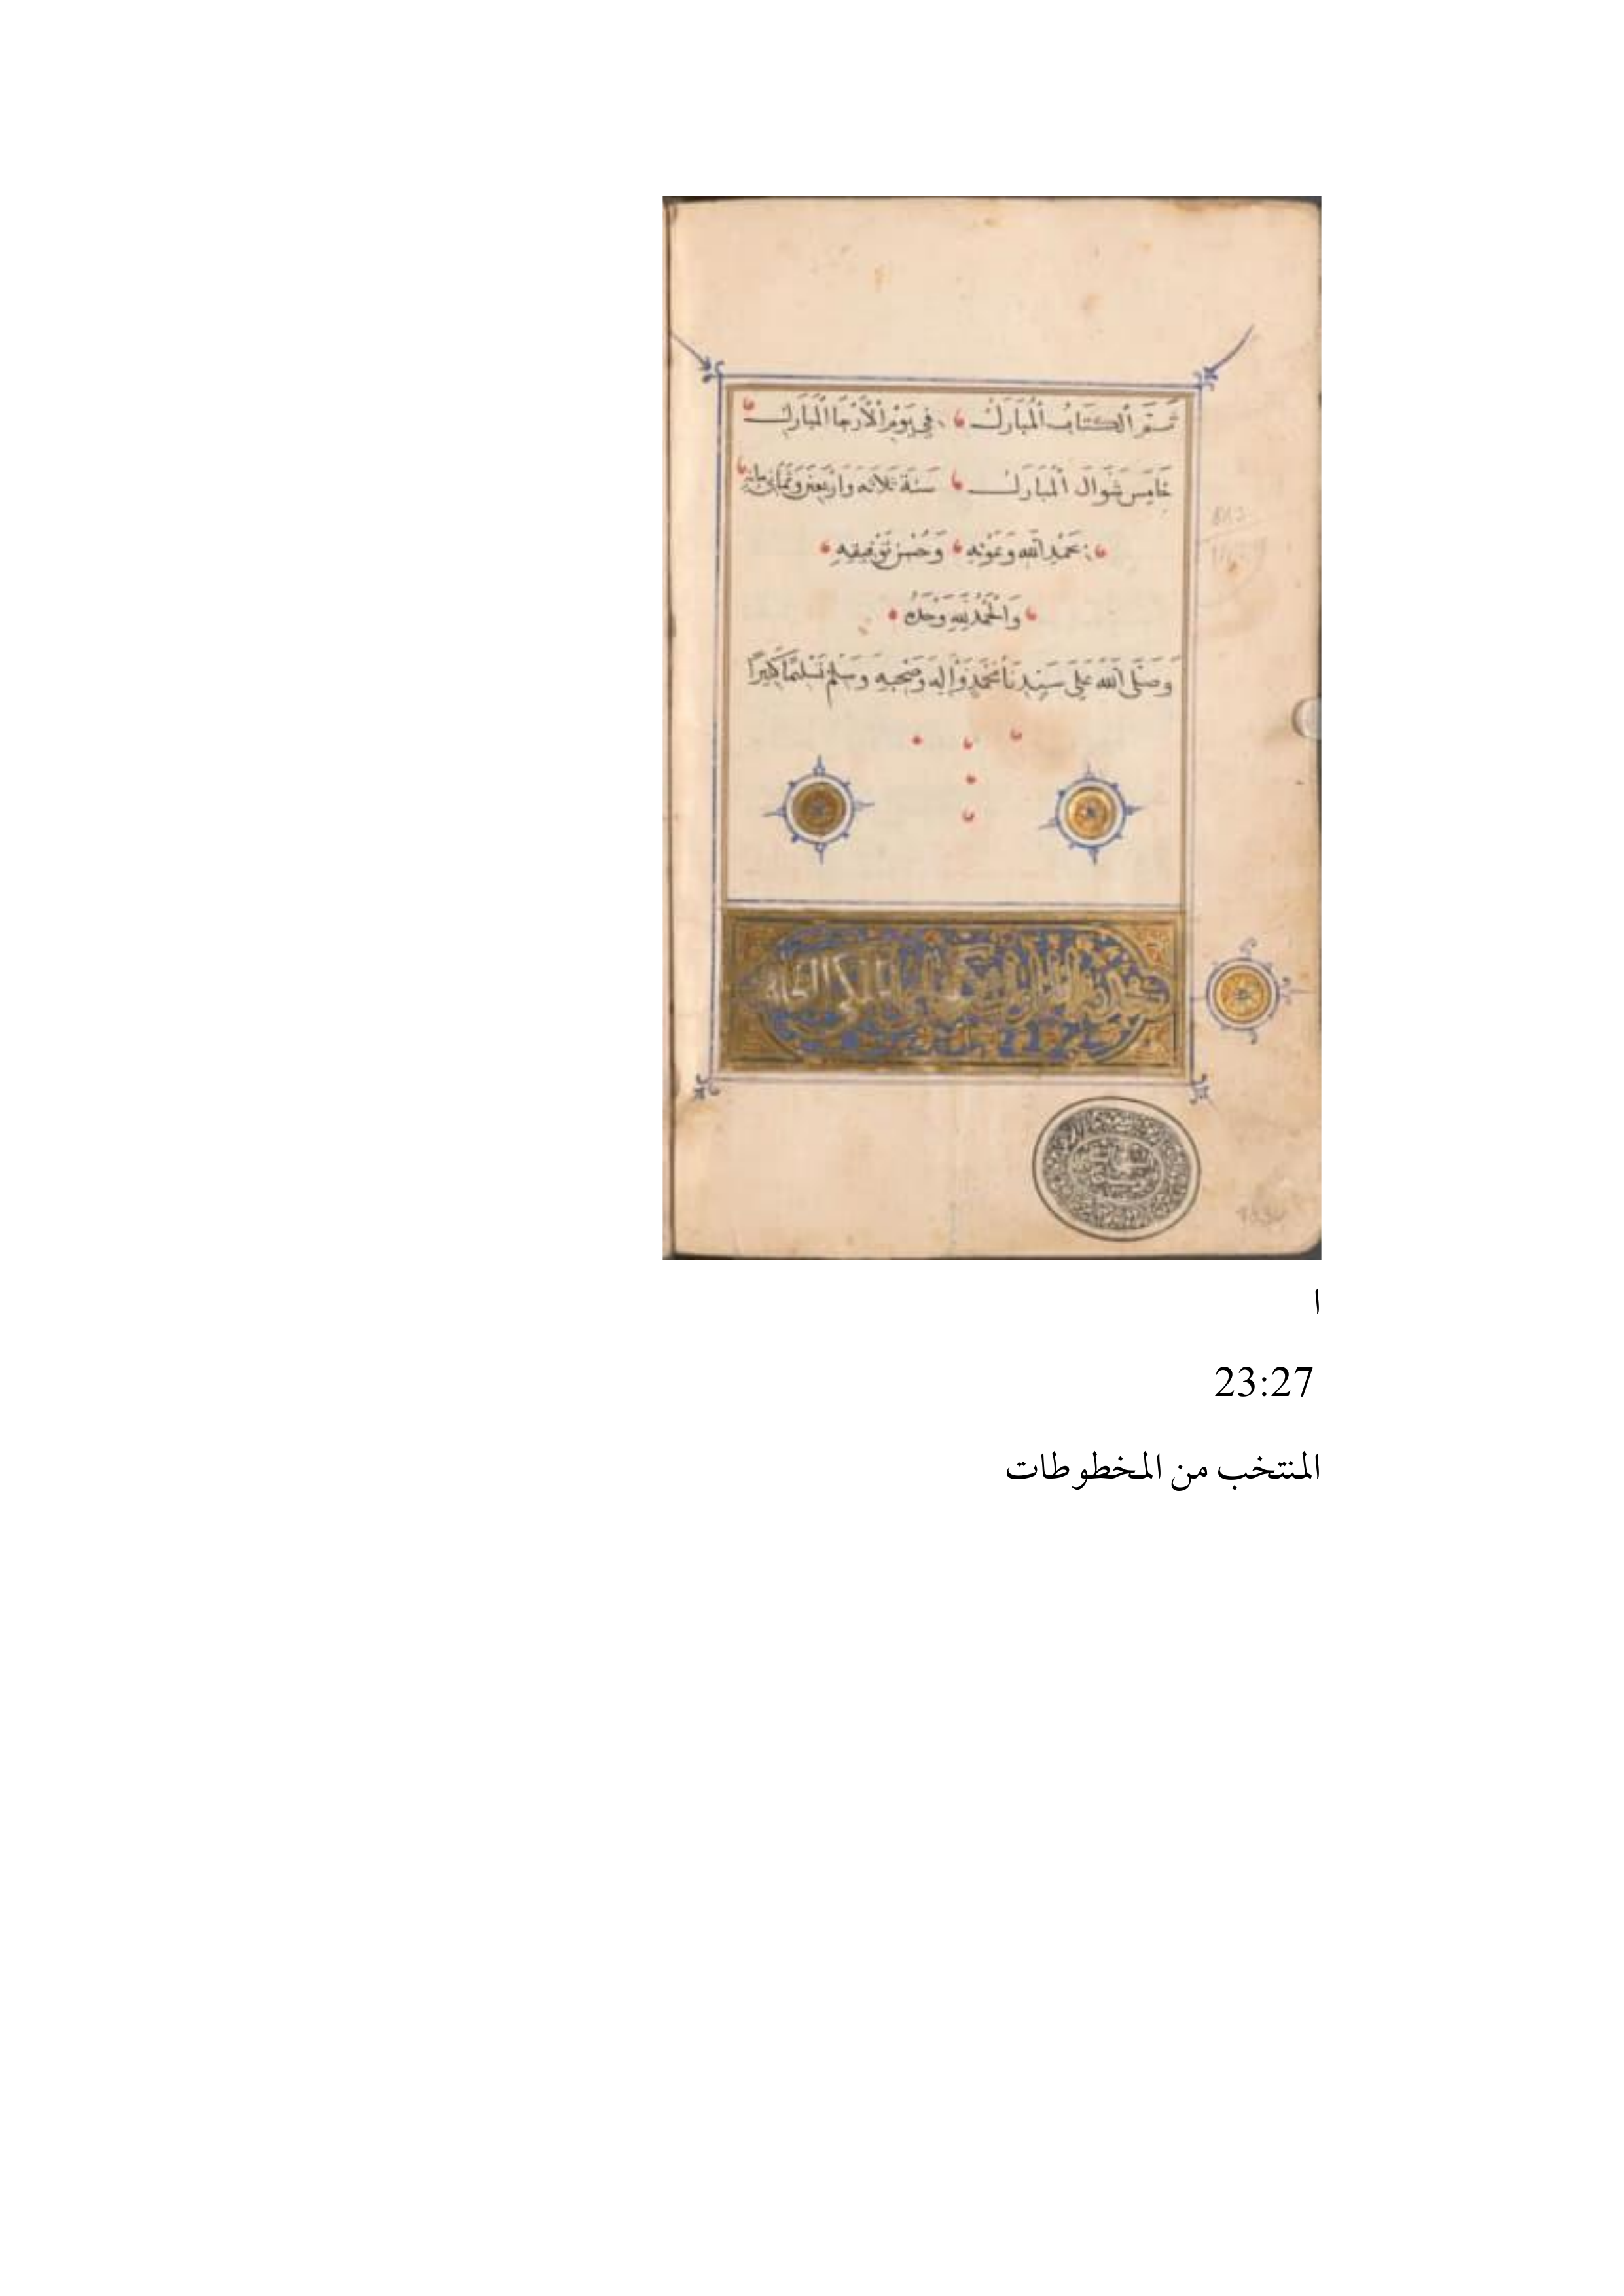 تَمَّ الكتَابُ المُبَارَكُ في يَوْمِ الأَرْبعَا المُبَارَك
خَامِس شَوال المُبَارَك سَنَة ثَلاثه وَارْبَعين وَثمَاني مائه
بحَمْدِ الله وَعَوْنِهِ وَحُسْنِ تَوْفيقِهِ
وَالحَمْدُ لِلهِ وَحْدَهُ
وَصَلَّى الله عَلَى سَيِّدِنَا مُحَمَّدٍ وَآلِهِ وَصَحْبِهِ وَسَلم تَسْلِيمًا كَثِيرًا
ا
23:27
المنتخب من المخطوطات